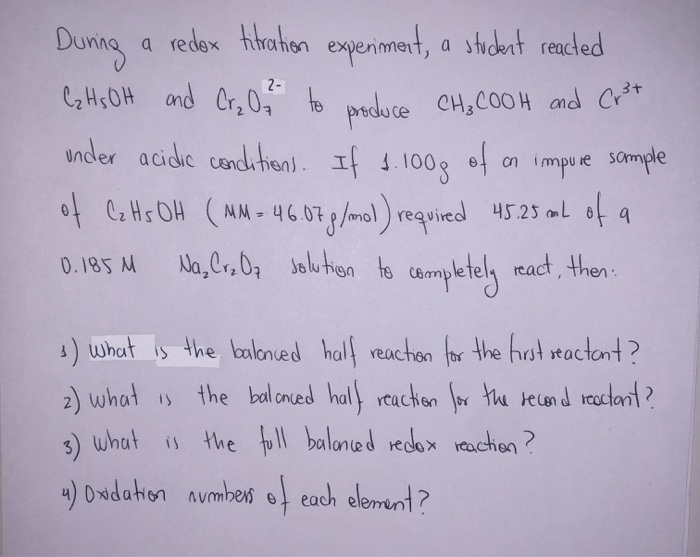 During a redox titration experiment, a student reacted
C₂H₅OH and Cr₂O₇²⁻ to produce CH₃COOH and Cr³⁺
under acidic conditions. If 1.100g of an impure sample
of C₂H₅OH (MM = 46.07 g/mol) required 45.25 mL of a
0.185 M Na₂Cr₂O₇ solution to completely react, then:
1) What is the balanced half reaction for the first reactant?
2) what is the balanced half reaction for the second reactant?
3) what is the full balanced redox reaction?
4) Oxidation numbers of each element?